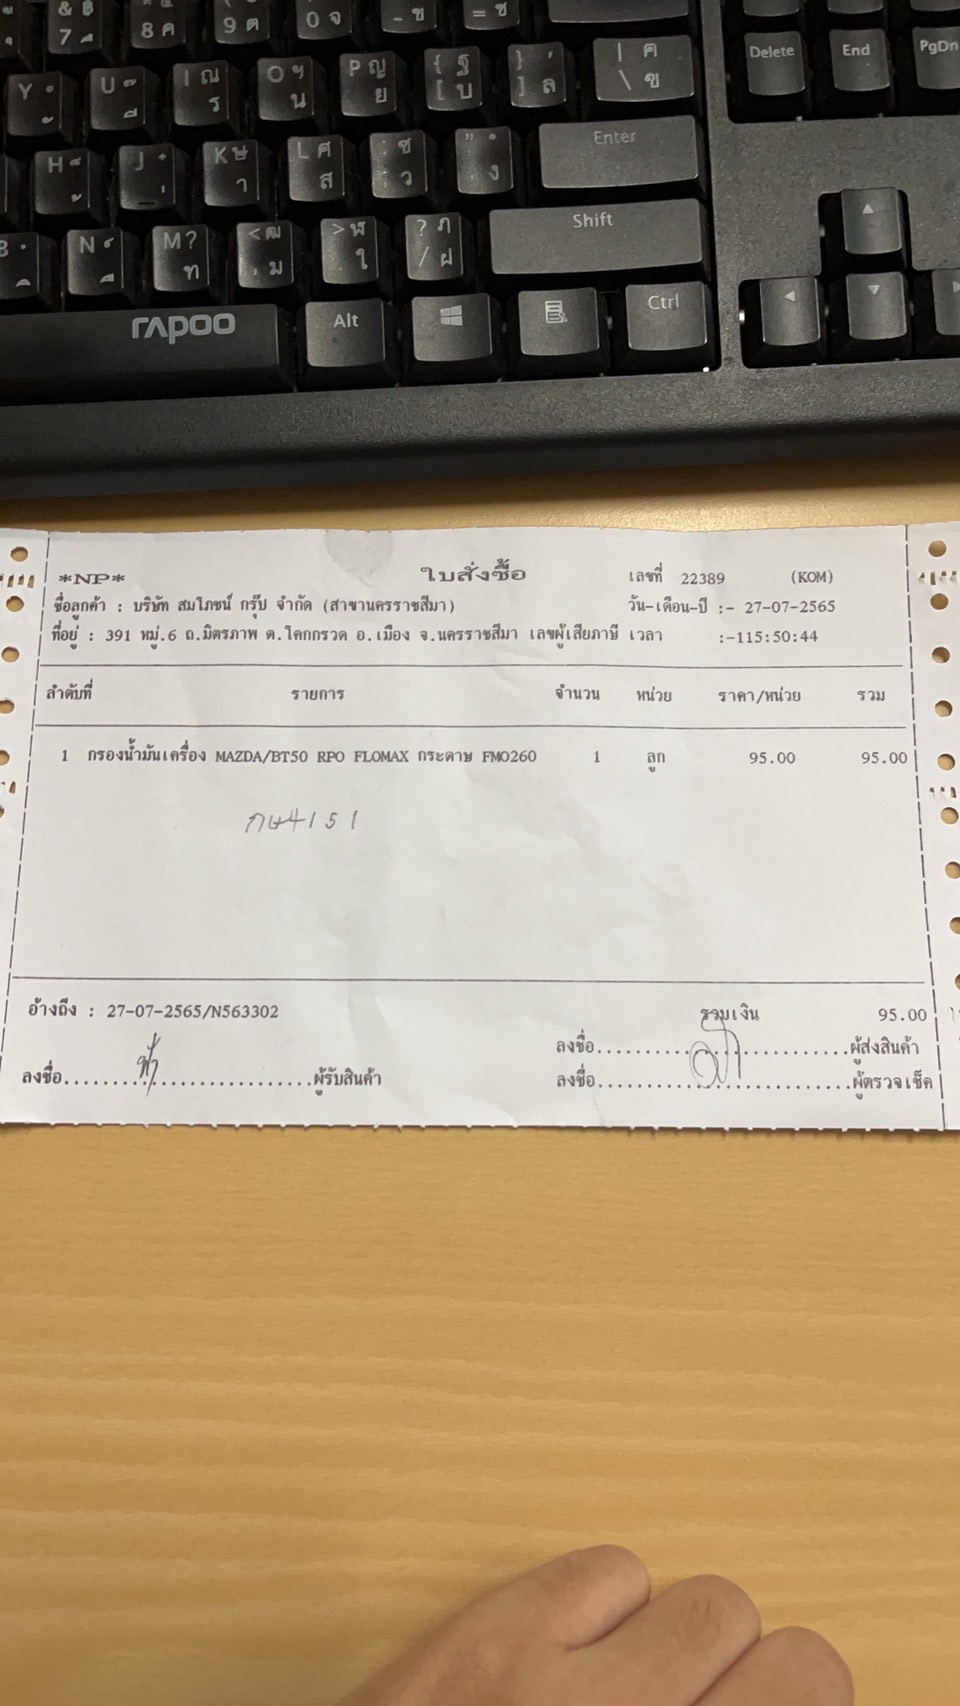 & ฿
7 ึ
8 ค
9 ต
0 จ
- ข
= ช
Y ํ
ั
U ๊
ี
I ณ
ร
O ฯ
น
P ญ
ย
{ ฐ
[ บ
} ,
] ล
| ฅ
\ ฃ
Delete
End
PgDn
H ็
้
J ๋
่
K ษ
า
L ศ
ส
: ซ
; ว
" .
' ง
Enter
N ์
ื
M ?
ท
< ฒ
, ม
> ฬ
. ใ
? ฦ
/ ฝ
Shift
rapoo
Alt
Ctrl
*NP* ใบสั่งซื้อ เลขที่ 22389 (KOM)
ชื่อลูกค้า : บริษัท สมโภชน์ กรุ๊ป จำกัด (สาขานครราชสีมา) วัน-เดือน-ปี :- 27-07-2565
ที่อยู่ : 391 หมู่.6 ถ.มิตรภาพ ต.โคกกรวด อ.เมือง จ.นครราชสีมา เลขผู้เสียภาษี เวลา :-115:50:44
ลำดับที่ รายการ จำนวน หน่วย ราคา/หน่วย รวม
1 กรองน้ำมันเครื่อง MAZDA/BT50 RPO FLOMAX กระดาษ FMO260 1 ลูก 95.00 95.00
กษ4151
อ้างถึง : 27-07-2565/N563302 รวมเงิน 95.00
ลงชื่อ..............................ผู้ส่งสินค้า
ลงชื่อ..............................ผู้รับสินค้า ลงชื่อ..............................ผู้ตรวจเช็ค